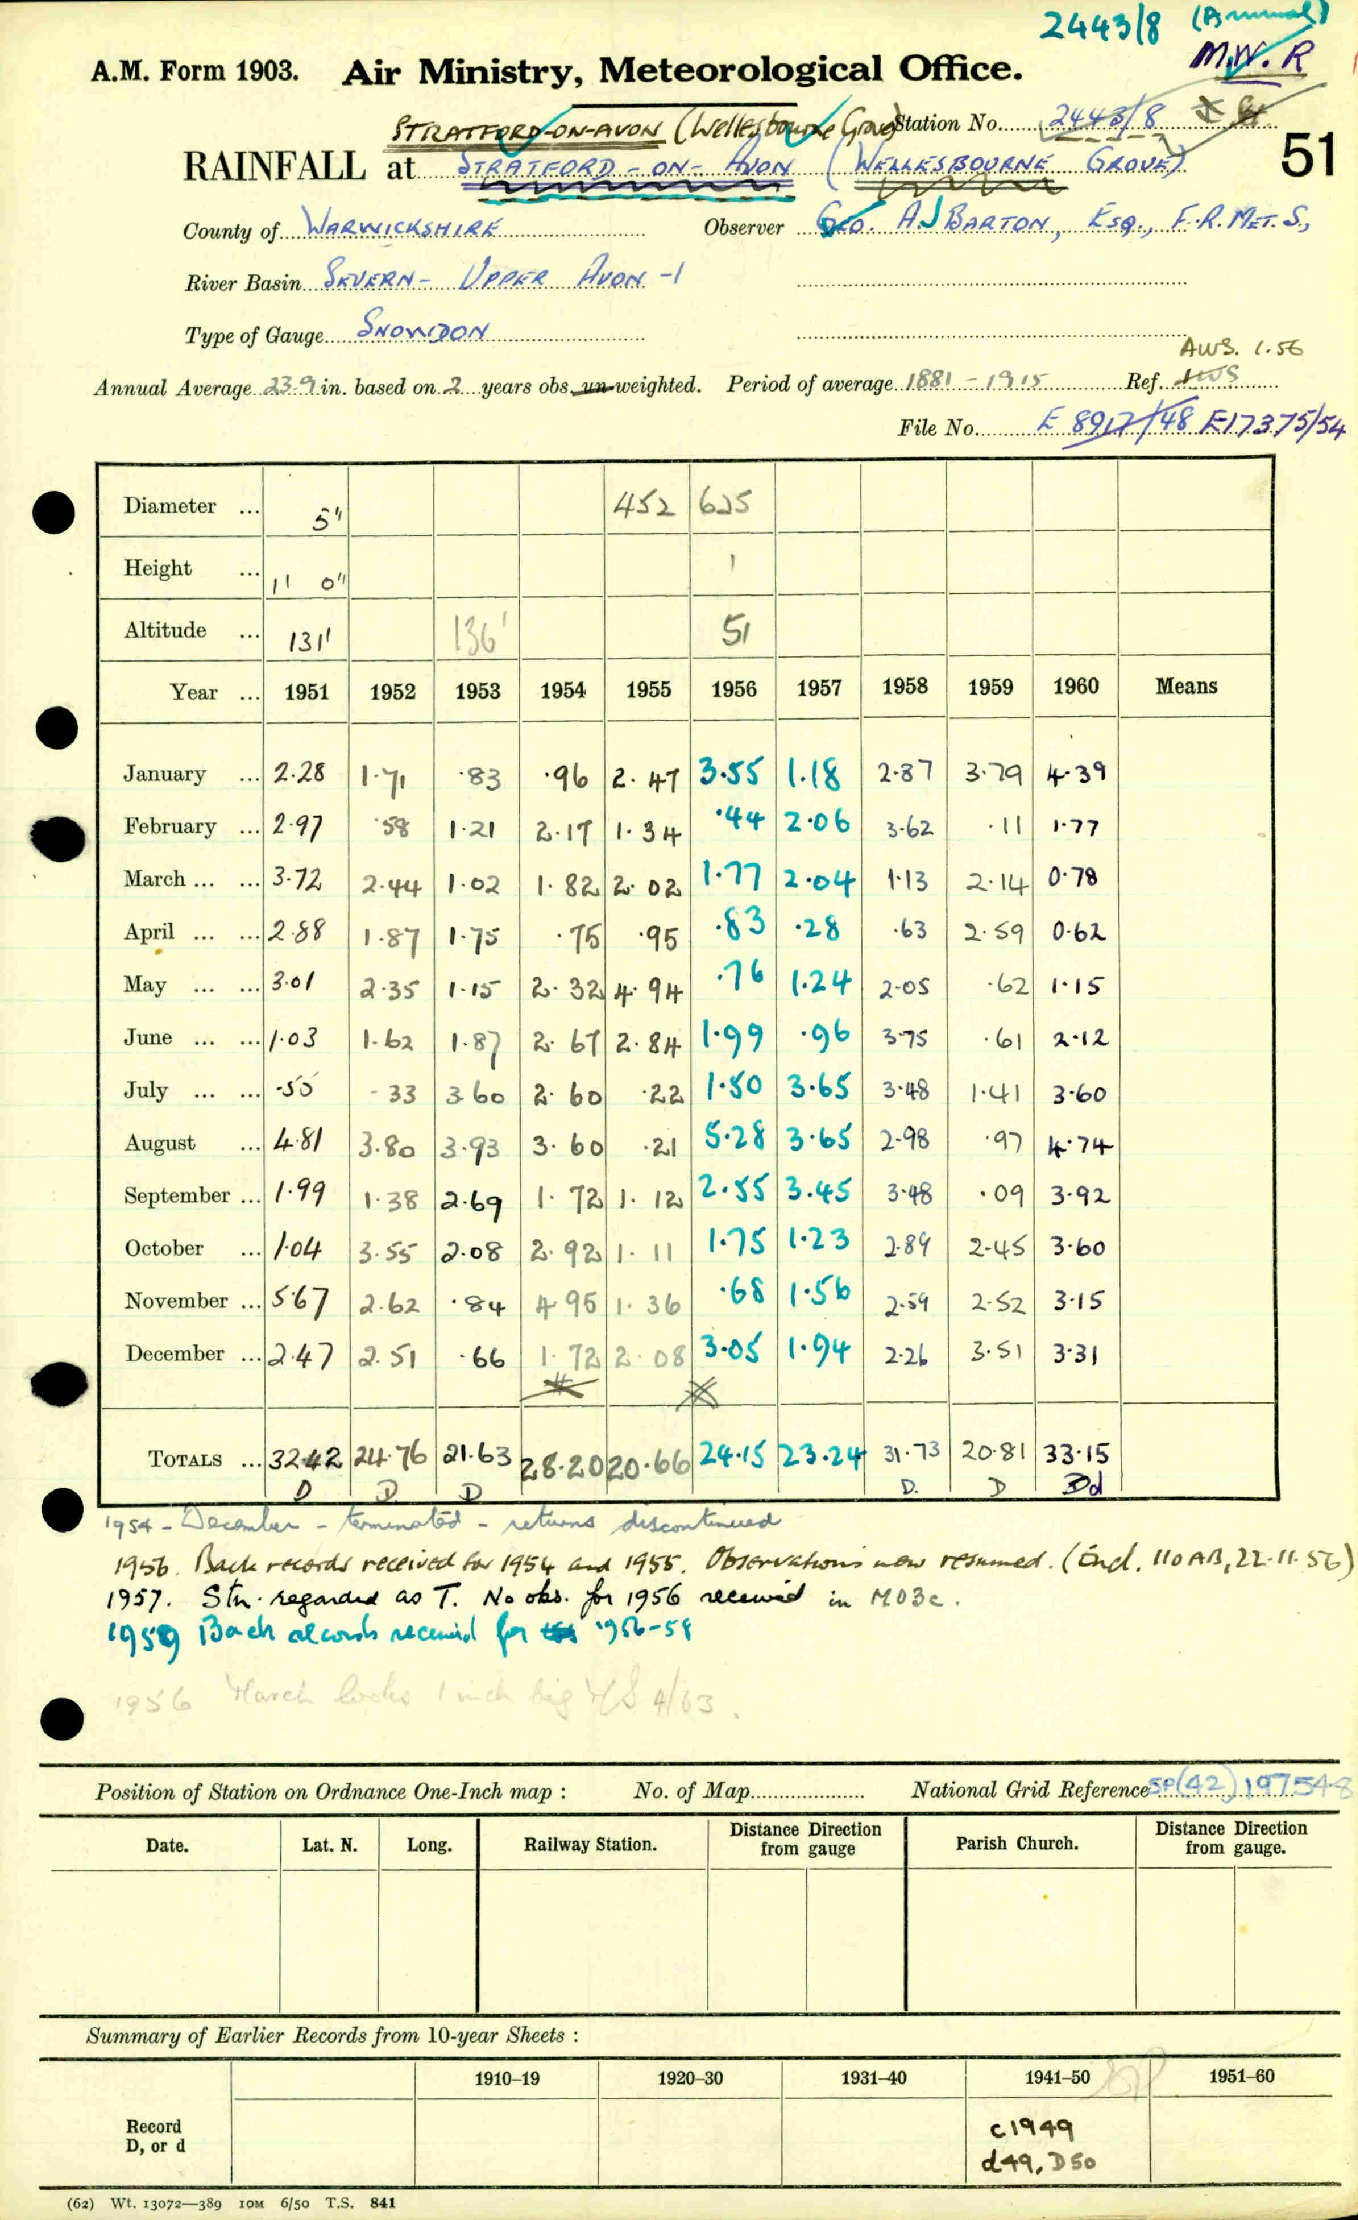 2443/8 (Annual)
M.W.R
A.M. Form 1903. Air Ministry, Meteorological Office.
STRATFORD-ON-AVON (Wellesbourne Grove) Station No. 2443/8
RAINFALL at STRATFORD-ON-AVON (WELLESBOURNE GROVE) 51
County of WARWICKSHIRE Observer GEO. A.J BARTON, ESQ., F.R.MET.S.,
River Basin SEVERN- UPPER AVON -1
Type of Gauge SNOWDON
AWS. 1.56
Annual Average 23.9 in. based on 2 years obs. un-weighted. Period of average 1881-1915 Ref. AWS
File No. E 8917/48 E17375/54
Diameter ... 5" 452 625
Height ... 1' 0" 1
Altitude ... 131' 136' 51
Year ... 1951 1952 1953 1954 1955 1956 1957 1958 1959 1960 Means
January ... 2.28 1.71 .83 .96 2.47 3.55 1.18 2.87 3.79 4.39
February ... 2.97 .58 1.21 2.17 1.34 .44 2.06 3.62 .11 1.77
March ... ... 3.72 2.44 1.02 1.82 2.02 1.77 2.04 1.13 2.14 0.78
April ... ... 2.88 1.87 1.75 .75 .95 .83 .28 .63 2.59 0.62
May ... ... 3.01 2.35 1.15 2.32 4.94 .76 1.24 2.05 .62 1.15
June ... ... 1.03 1.62 1.87 2.67 2.84 1.99 .96 3.75 .61 2.12
July ... ... .55 .33 3.60 2.60 .22 1.50 3.65 3.48 1.41 3.60
August ... 4.81 3.80 3.93 3.60 .21 5.28 3.65 2.98 .97 4.74
September ... 1.99 1.38 2.69 1.72 1.12 2.55 3.45 3.48 .09 3.92
October ... 1.04 3.55 2.08 2.92 1.11 1.75 1.23 2.89 2.45 3.60
November ... 5.67 2.62 .84 4.95 1.36 .68 1.56 2.59 2.52 3.15
December ... 2.47 2.51 .66 1.72 2.08 3.05 1.94 2.26 3.51 3.31
TOTALS ... 32.42 24.76 21.63 28.20 20.66 24.15 23.24 31.73 20.81 33.15
D D D D. D Dd
1954 - December - terminated - returns discontinued
1956. Back records received for 1954 and 1955. Observations now resumed. (Encl. 110AB, 22.11.56)
1957. Stn. regarded as T. No obs. for 1956 received in MO3c.
1959 Back records received for 1956-58
1956 March looks 1 inch big 4/63.
Position of Station on Ordnance One-Inch map : No. of Map National Grid Reference SP(42) 197548
Date. Lat. N. Long. Railway Station. Distance from gauge Direction Parish Church. Distance from gauge. Direction
Summary of Earlier Records from 10-year Sheets :
1910–19 1920–30 1931–40 1941–50 1951–60
Record D, or d
c1949
d49, D50
(62) Wt. 13072—389 10M 6/50 T.S. 841